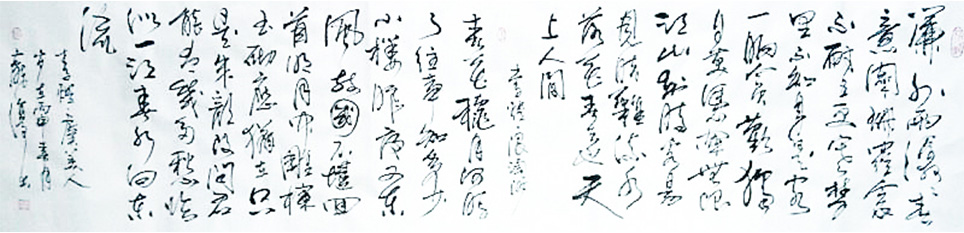 簾外雨潺潺春
意闌珊羅衾
不耐五更寒夢
里不知身是客
一晌貪歡獨
自莫憑欄無限
江山別時容易
見時難流水
落花春去也天
上人間
李煜浪淘沙
春花秋月何時
了往事知多少
小樓昨夜又東
風故國不堪回
首明月中雕欄
玉砌應猶在只
是朱顏改問君
能有幾多愁恰
似一江春水向東
流
李煜虞美人
春月
書